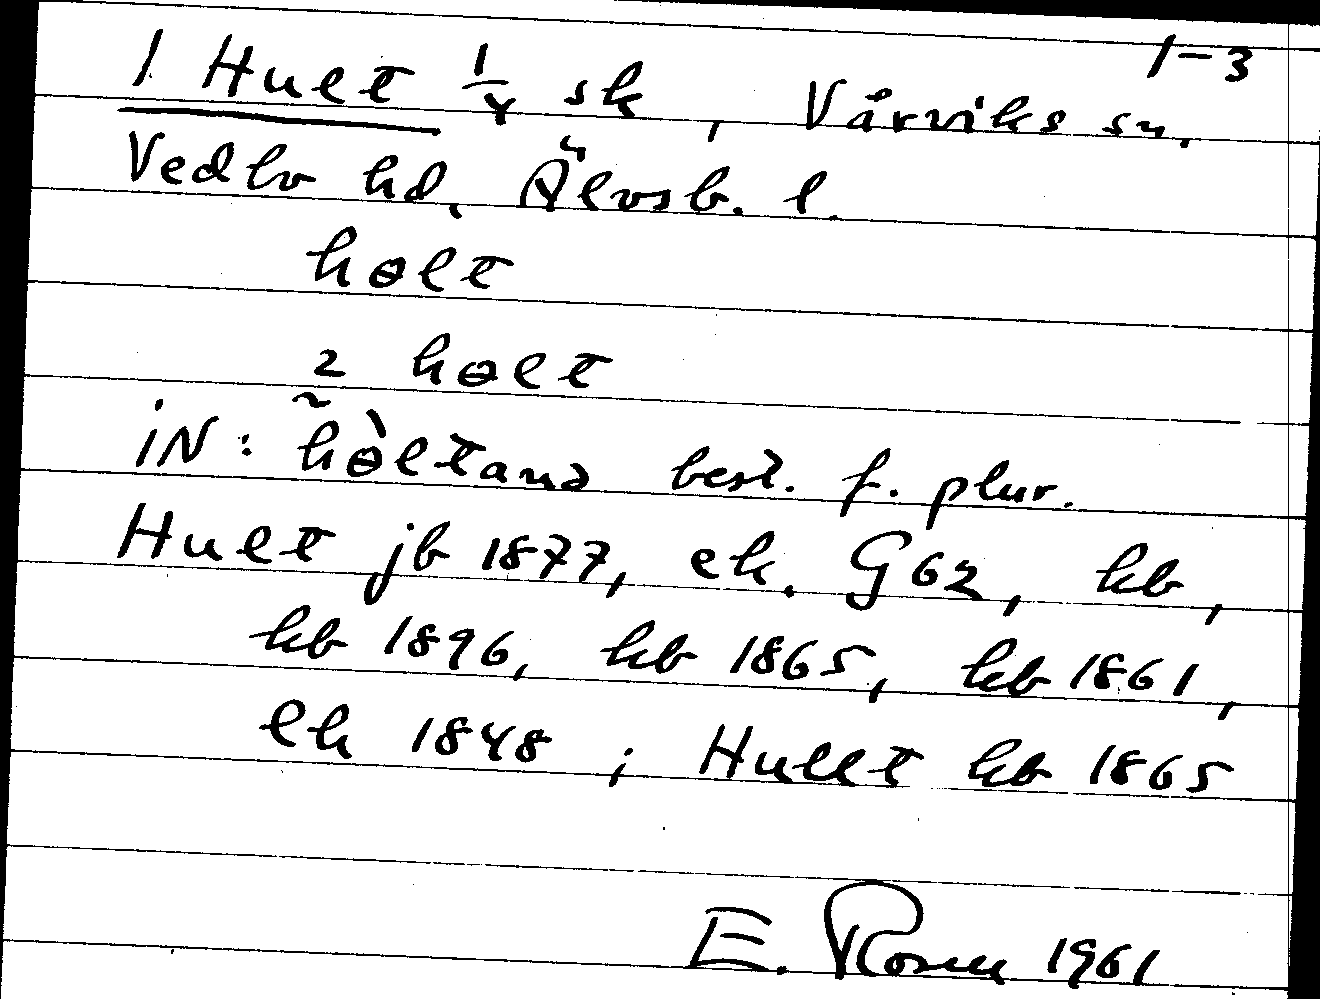 1-3
1 Hult 1/4 sk, Vårviks sn.
Vedbo hd, Älvsb. l.
hɵlt
2 hɵlt
iN: hɵ̀ltana best. f. plur.
Hult jb 1877, ek. G62, kb,
kb 1896, kb 1865, kb 1861,
ek 1848; Hullt kb 1865
E. Rosell 1961